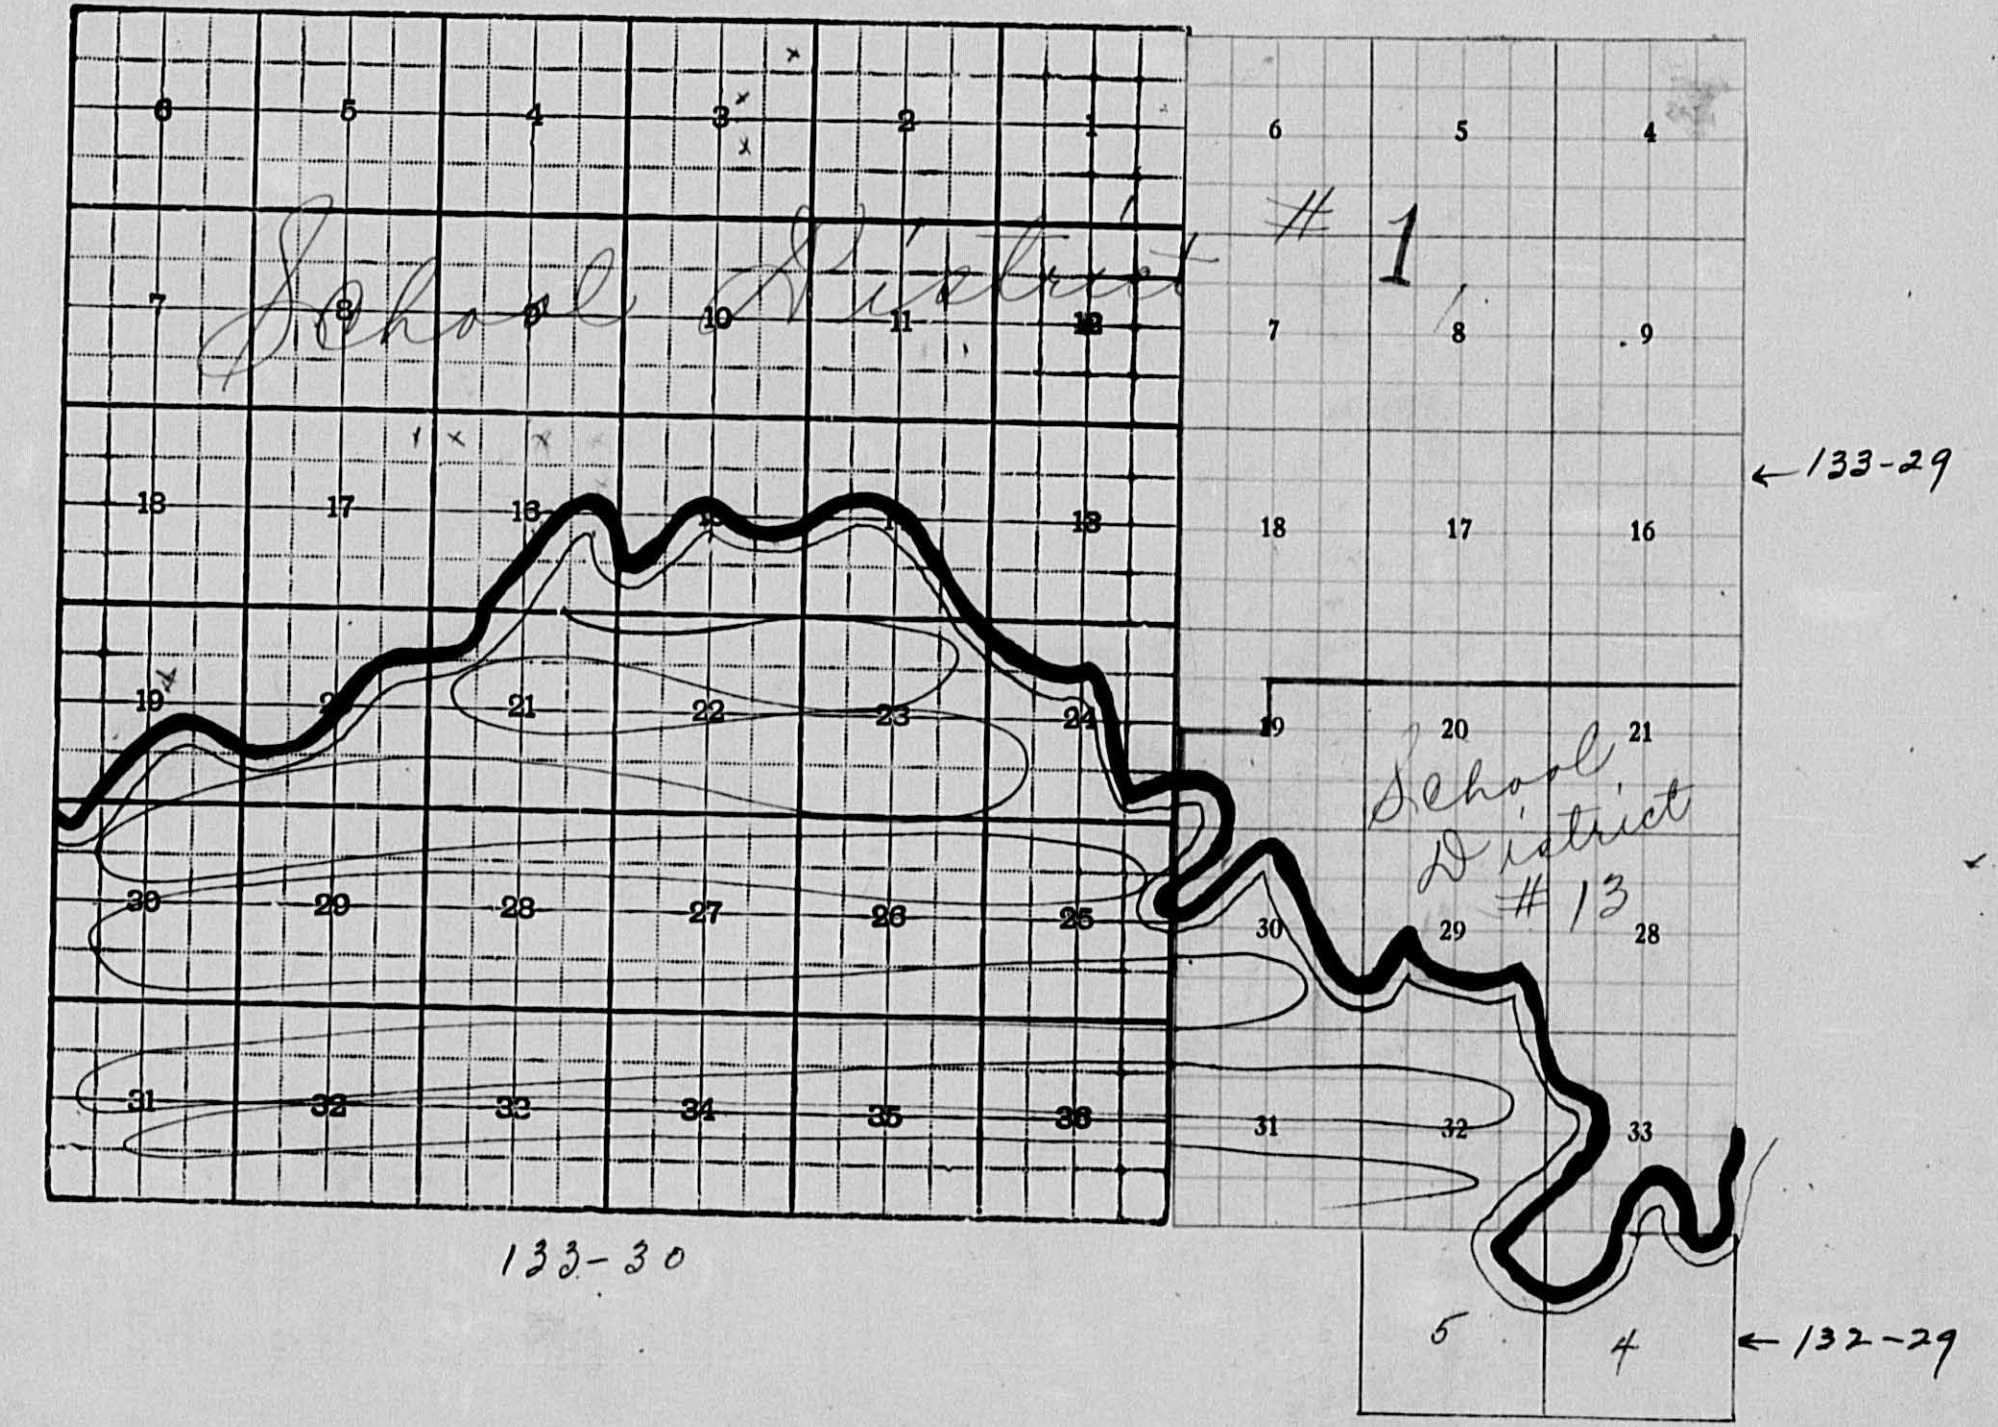 6 5 4 3 2 1 6 5 4
# 1
School District
7 8 9 10 11 12 7 8 9
← 133-29
18 17 16 15 18 17 16
19 21 22 23 24 19 20 21
School
District
# 13
30 29 28 27 26 25 30 29 28
31 32 33 34 35 36 31 32 33
133-30
5 4
← 132-29